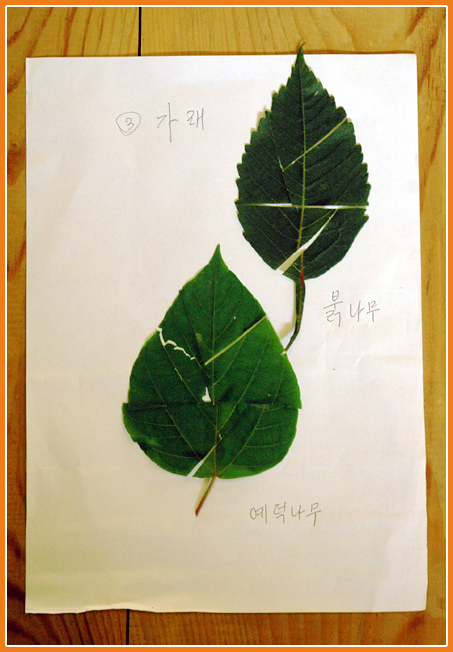 ③ 가래
붉나무
예덕나무